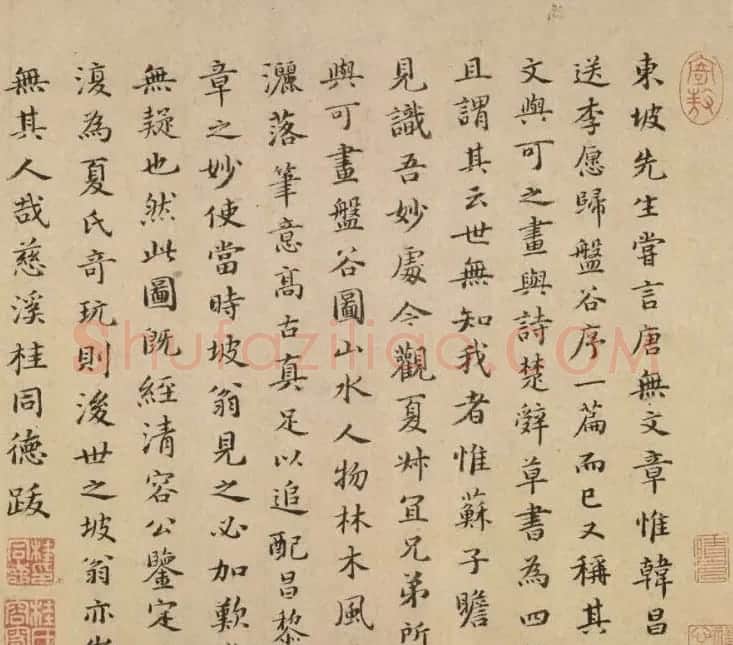 東坡先生嘗言唐無文章惟韓昌
送李愿歸盤谷序一篇而已又稱其
文與可之畫與詩楚辭草書為四
且謂其云世無知我者惟蘇子瞻
見識吾妙處今觀夏叔冝兄弟所
與可畫盤谷圖山水人物林木風
灑落筆意高古真足以追配昌黎
章之妙使當時坡翁見之必加歎
無疑也然此圖既經清容公鑒定
復為夏氏奇玩則後世之坡翁亦
無其人哉慈溪桂同德跋
Shufaziliao.COM